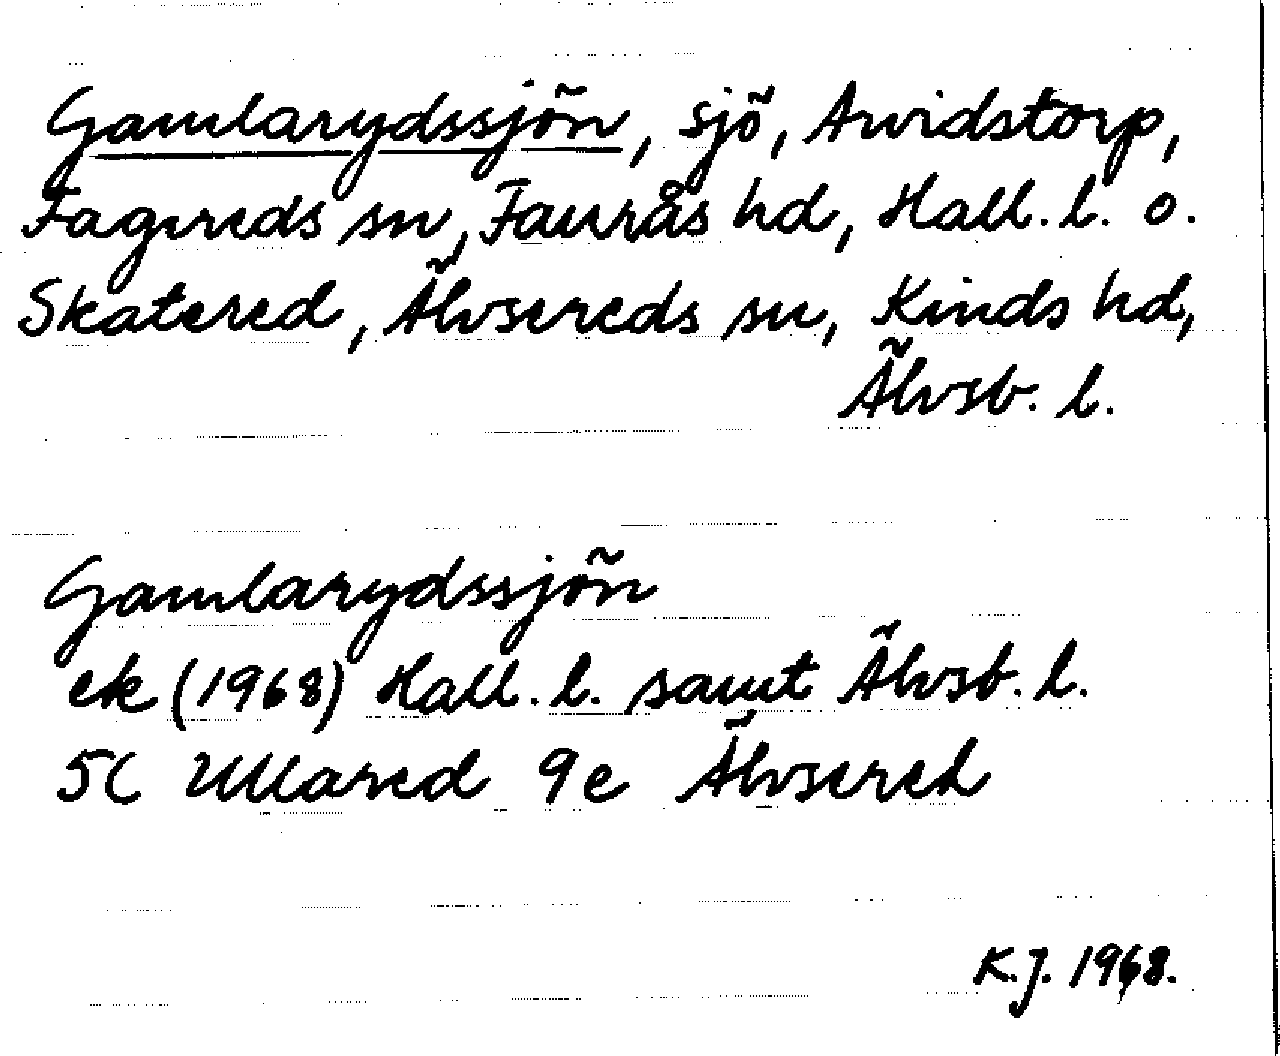 Gamlarydssjön, sjö, Arvidstorp,
Fagereds sn, Faurås hd, Hall. l. o.
Skatered, Älvsereds sn, Kinds hd,
Älvsb. l.
Gamlarydssjön
ek (1968) Hall. l. samt Älvsb. l.
5C Ullared 9e Älvsered
K.J. 1968.